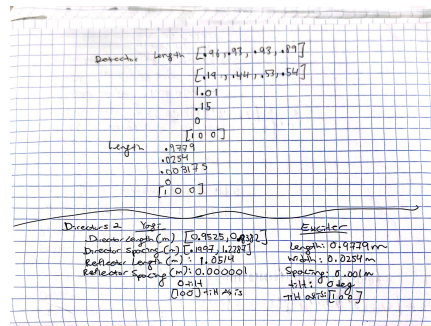 Detector Length [.96, .93, .93, .89]
[.19, .44, .53, .54]
1.01
.15
0
[1 0 0]
Length .9779
.0254
.003175
0
[1 0 0]
Directors 2 Yagi
Director Length (m) [0.9525, 0.9302]
Director Spacing (m) [.1997, 1.2287]
Reflector Length (m): 1.0519
Reflector Spacing (m): 0.000001
0 tilt
[100] tilt axis
Exciter
Length: 0.9779 m
Width: 0.0254 m
Spacing: 0.001 m
tilt: 0 deg
tilt axis: [1 0 0]